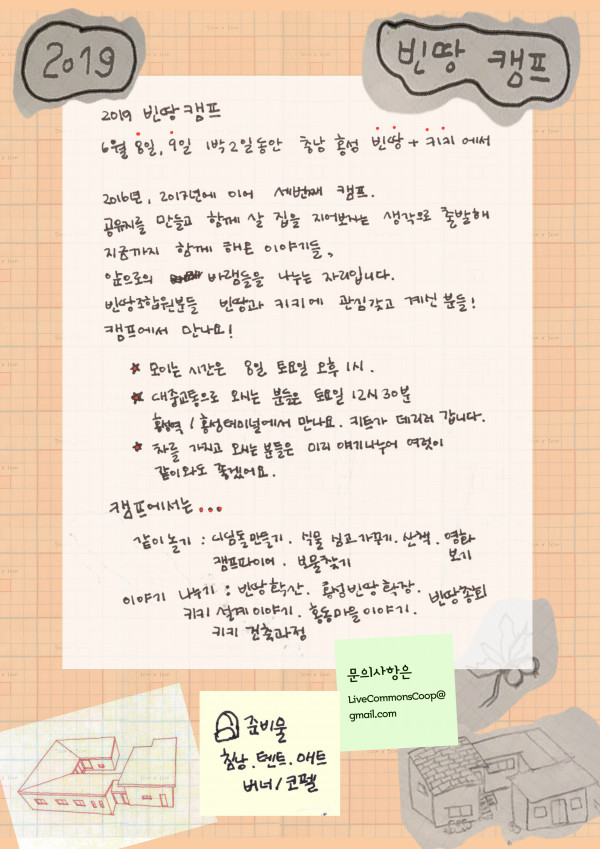 2019
빈땅 캠프
2019 빈땅캠프
6월 8일, 9일 1박2일동안 충남 홍성 빈땅 + 키키 에서
2016년, 2017년에 이어 세번째 캠프.
공유지를 만들고 함께 살 집을 지어보자는 생각으로 출발해
지금까지 함께 해온 이야기들,
앞으로의 바램들을 나누는 자리입니다.
빈땅조합원분들 빈땅과 키키에 관심갖고 계신 분들!
캠프에서 만나요!
★ 모이는 시간은 8일 토요일 오후 1시.
★ 대중교통으로 오시는 분들은 토요일 12시 30분
홍성역 / 홍성터미널에서 만나요. 키트가 데리러 갑니다.
★ 차를 가지고 오시는 분들은 미리 얘기나누어 여럿이
같이와도 좋겠어요.
캠프에서는...
같이 놀기 : 디딤돌만들기. 식물 심고가꾸기. 산책. 영화
보기
캠프파이어. 보물찾기
이야기 나누기 : 빈땅확산. 홍성빈땅 확장. 빈땅총회
키키 설계이야기. 홍동마을이야기.
키키 건축과정
문의사항은
LiveCommonsCoop@
gmail.com
준비물
침낭. 텐트. 매트
버너/코펠